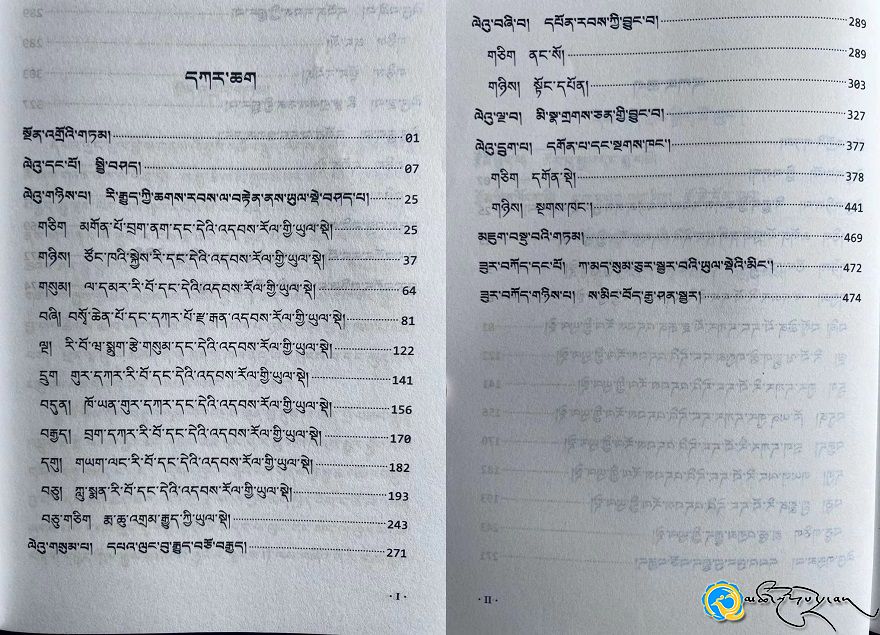 དཀར་ཆག
སྔོན་འགྲོའི་གཏམ། 01
ལེའུ་དང་པོ། སྤྱི་བཤད། 07
ལེའུ་གཉིས་པ། རི་རྒྱུད་ཀྱི་ཆགས་རབས་ལ་བརྟེན་ནས་ཡུལ་སྡེ་བཤད་པ། 25
གཅིག མགོན་པོ་བྲག་ནག་དང་དེའི་འདབས་རོལ་གྱི་ཡུལ་སྡེ། 25
གཉིས། ཙོང་ཁའི་སྐྱེས་རི་དང་དེའི་འདབས་རོལ་གྱི་ཡུལ་སྡེ། 37
གསུམ། ལ་དམར་རི་བོ་དང་དེའི་འདབས་རོལ་གྱི་ཡུལ་སྡེ། 64
བཞི། བསྭོ་ཆེན་པོ་དང་དཀར་པོ་རྫ་རྒན་འདབས་རོལ་གྱི་ཡུལ་སྡེ། 81
ལྔ། རི་བོ་ཝ་སྨུག་རྩེ་གསུམ་དང་དེའི་འདབས་རོལ་གྱི་ཡུལ་སྡེ། 122
དྲུག གུར་དཀར་རི་བོ་དང་དེའི་འདབས་རོལ་གྱི་ཡུལ་སྡེ། 141
བདུན། ཁོ་ཡན་གུར་དཀར་དང་དེའི་འདབས་རོལ་གྱི་ཡུལ་སྡེ། 156
བརྒྱད། བྲག་དཀར་རི་བོ་དང་དེའི་འདབས་རོལ་གྱི་ཡུལ་སྡེ། 170
དགུ། གཡག་ལང་རི་བོ་དང་དེའི་འདབས་རོལ་གྱི་ཡུལ་སྡེ། 182
བཅུ། ཀླུ་སྨན་རི་བོ་དང་དེའི་འདབས་རོལ་གྱི་ཡུལ་སྡེ། 193
བཅུ་གཅིག རྨ་ཆུ་འགྲམ་རྒྱུད་ཀྱི་ཡུལ་སྡེ། 243
ལེའུ་གསུམ་པ། དཔའ་ལུང་བུ་རྒྱུད་བཅོ་བརྒྱད། 271
· I ·
ལེའུ་བཞི་བ། དཔོན་རབས་ཀྱི་བྱུང་བ། 289
གཅིག ནང་སོ། 289
གཉིས། སྟོང་དཔོན། 303
ལེའུ་ལྔ་བ། མི་སྣ་གྲགས་ཅན་གྱི་བྱུང་བ། 327
ལེའུ་དྲུག་པ། དགོན་པ་དང་སྔགས་ཁང་། 377
གཅིག དགོན་སྡེ། 378
གཉིས། སྔགས་ཁང་། 441
མཇུག་བསྡུ་བའི་གཏམ། 469
ཟུར་བཀོད་དང་པོ། ཀ་མད་སུམ་ཅུར་སྦྱར་བའི་ཡུལ་སྡེའི་མིང་། 472
ཟུར་བཀོད་གཉིས་པ། ས་མིང་བོད་རྒྱ་ཤན་སྦྱར། 474
· II ·